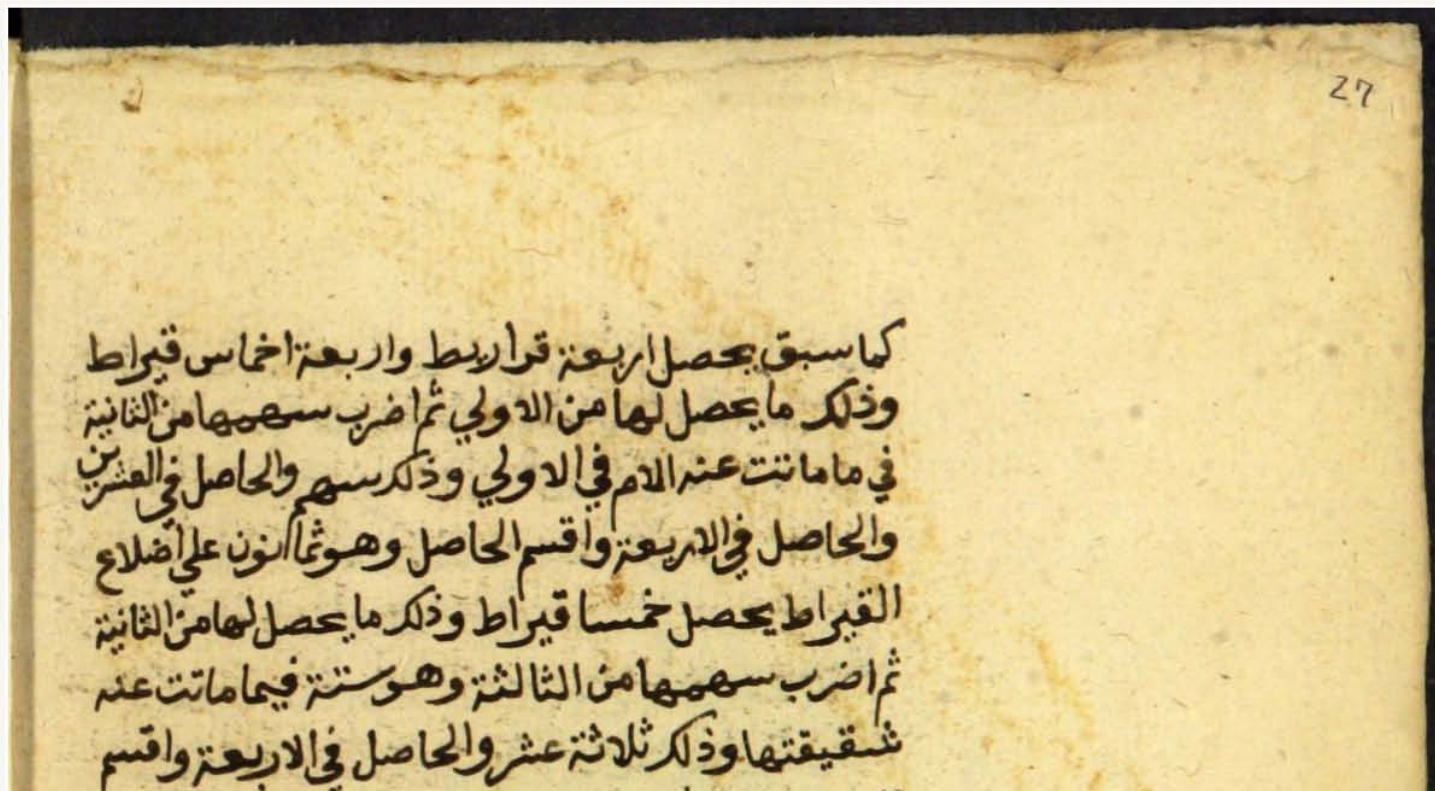 27
كما سبق يحصل اربعة قراريط واربعة اخماس قيراط
وذلك ما يحصل لها من الاولي ثم اضرب سهمها من الثانية
في ما ماتت عنه الام في الاولي وذلك سهم والحاصل في العشرين
والحاصل في الاربعة واقسم الحاصل وهو ثمانون علي أضلاع
القيراط يحصل خمسا قيراط وذلك ما يحصل لها من الثانية
ثم اضرب سهمها من الثالثة وهو ستة فيما ماتت عنه
شقيقتها وذلك ثلاثة عشر والحاصل في الاربعة واقسم